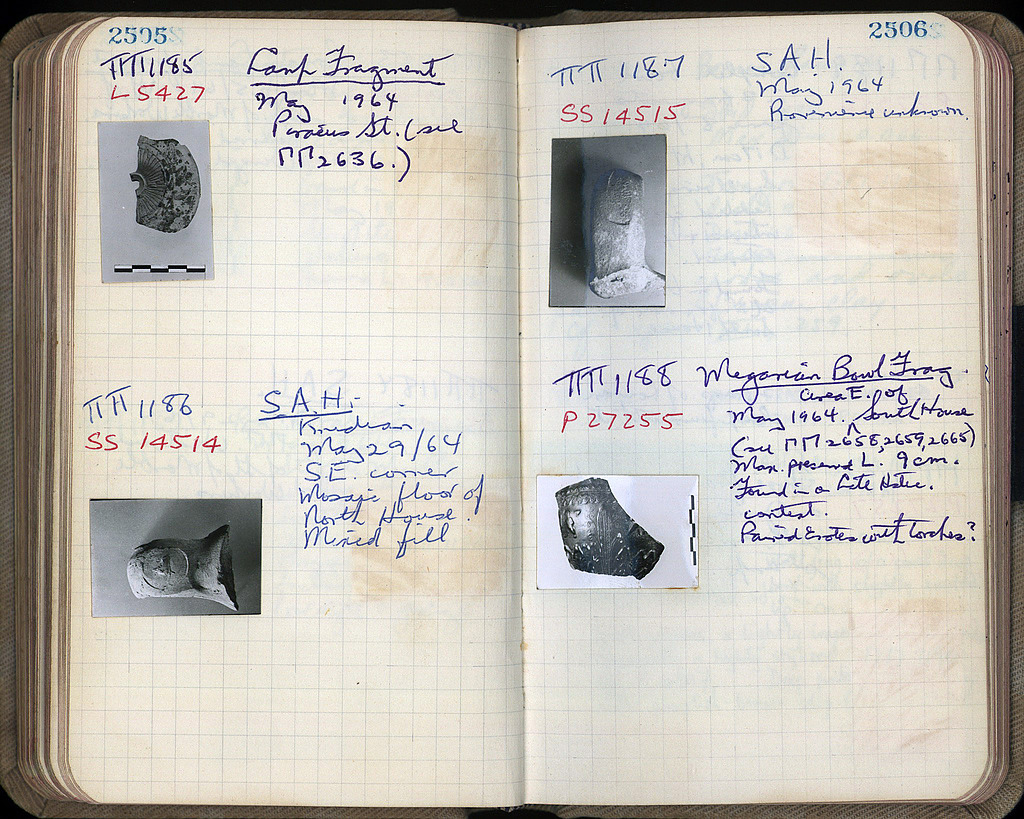 2505
ΠΠ 1185
L 5427
Lamp Fragment
May 1964
Piraeus St. (see
ΠΠ 2636.)
ΠΠ 1186
SS 14514
S.A.H.-
Knidian
May 29/64
S.E. corner
Mosaic floor of
North House.
Mixed fill
2506
ΠΠ 1187
SS 14515
S.A.H.
May 1964
Provenience unknown.
ΠΠ 1188
P 27255
Megarian Bowl Frag.
area E. of
May 1964. South House
(see ΠΠ 2658, 2659, 2665)
Max. preserved L. 9 cm.
Found in a Late
context.
Paired Erotes with torches?